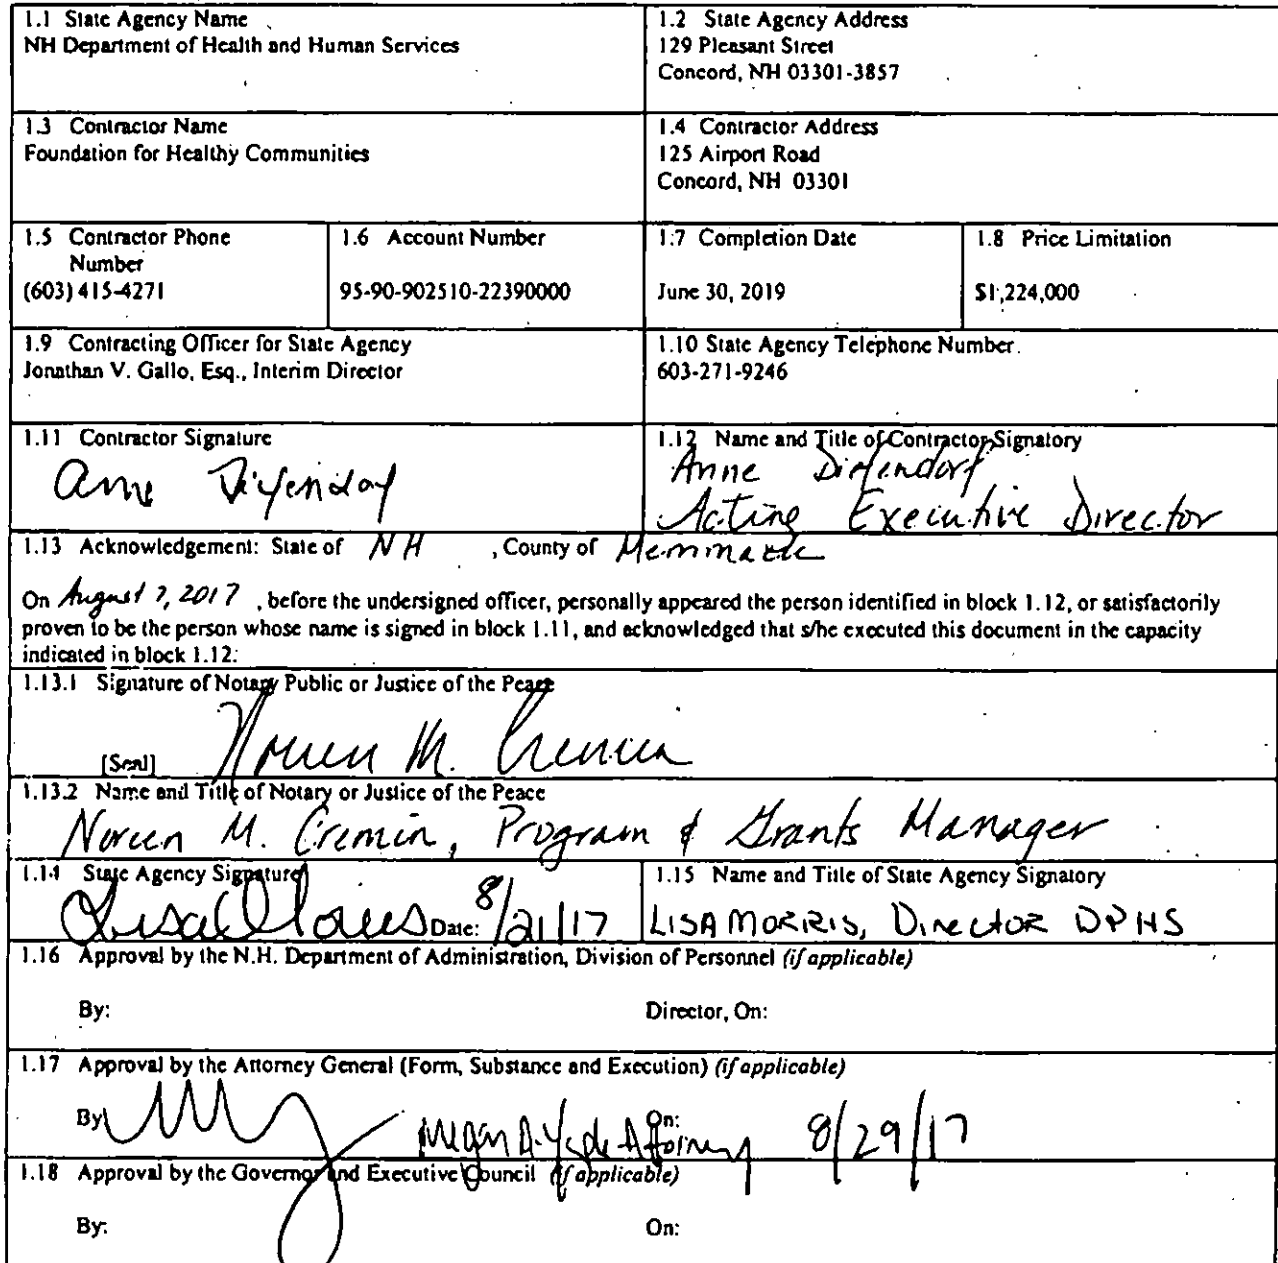 1.1 State Agency Name
NH Department of Health and Human Services
1.2 State Agency Address
129 Pleasant Street
Concord, NH 03301-3857
1.3 Contractor Name
Foundation for Healthy Communities
1.4 Contractor Address
125 Airport Road
Concord, NH 03301
1.5 Contractor Phone
Number
(603) 415-4271
1.6 Account Number
95-90-902510-22390000
1.7 Completion Date
June 30, 2019
1.8 Price Limitation
$1,224,000
1.9 Contracting Officer for State Agency
Jonathan V. Gallo, Esq., Interim Director
1.10 State Agency Telephone Number
603-271-9246
1.11 Contractor Signature
Anne Diefendorf
1.12 Name and Title of Contractor Signatory
Anne Diefendorf
Acting Executive Director
1.13 Acknowledgement: State of NH , County of Merrimack
On August 7, 2017 , before the undersigned officer, personally appeared the person identified in block 1.12, or satisfactorily
proven to be the person whose name is signed in block 1.11, and acknowledged that s/he executed this document in the capacity
indicated in block 1.12.
1.13.1 Signature of Notary Public or Justice of the Peace
[Seal] Noreen M. Cremin
1.13.2 Name and Title of Notary or Justice of the Peace
Noreen M. Cremin, Program & Grants Manager
1.14 State Agency Signature
Date: 8/21/17
1.15 Name and Title of State Agency Signatory
LISA MORRIS, Director DPHS
1.16 Approval by the N.H. Department of Administration, Division of Personnel (if applicable)
By: Director, On:
1.17 Approval by the Attorney General (Form, Substance and Execution) (if applicable)
By: Megan A. Attorney On: 8/29/17
1.18 Approval by the Governor and Executive Council (if applicable)
By: On: